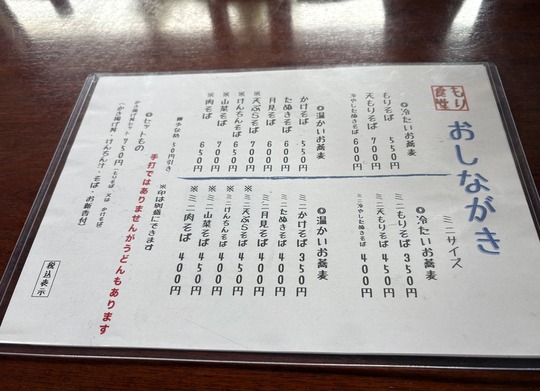 おしながき
もり
食性
◎冷たいお蕎麦
もりそば 550円
天もりそば 700円
冷やしたぬきそば 600円
◎温かいお蕎麦
かけそば 550円
たぬきそば 600円
月見そば 600円
※天ぷらそば 700円
※けんちんそば 650円
※山菜そば 700円
※肉そば 650円
ミニサイズ
◎冷たいお蕎麦
ミニもりそば 350円
ミニ天もりそば 450円
ミニ冷やしたぬきそば 400円
◎温かいお蕎麦
ミニかけそば 350円
ミニたぬきそば 400円
ミニ月見そば 400円
※ミニ天ぷらそば 450円
※ミニけんちんそば 450円
※ミニ山菜そば 450円
※ミニ肉そば 400円
50円引き
※印は別盛にできます
手打ではありませんがうどんもあります
◎セットもの
かき揚げ丼セット 750円
(かき揚げ丼、けんちん汁・そば・お新香付)
税込表示